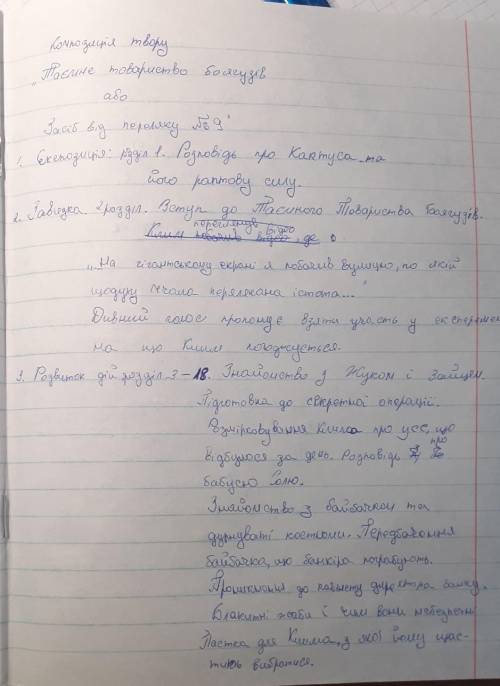 Композиція твору
"Таємне товариство боягузів
або
Засіб від переляку №9"
1. Експозиція: розділ 1. Розповідь про Кактуса та
його раптову силу.
2. Зав'язка. 2 розділ. Вступ до Таємного Товариства Боягузів.
переглянув відео
Клим побачив відео де
"На гігантському екрані я побачив вулицю, по якій
щодуху мчала перелякана істота..."
Дивний голос пропонує взяти участь у експеремен
на що Клим погоджується.
3. Розвиток дій. розділ 3-18. Знайомство з Жуком і Зайцем.
Підготовка до секретної операції.
Розмірковування Клима про усе, що
відбулося за день. Розповідь про
бабусю Солю.
Знайомство з байбачком та
дурнуваті костюми. Передбачення
байбачка, що банкіра пограбують.
Проникнення до кабінету директора банку.
Блакитні жаби і чим вони небезпечні
Пастка для Клима, з якої йому щас-
тить вибратися.